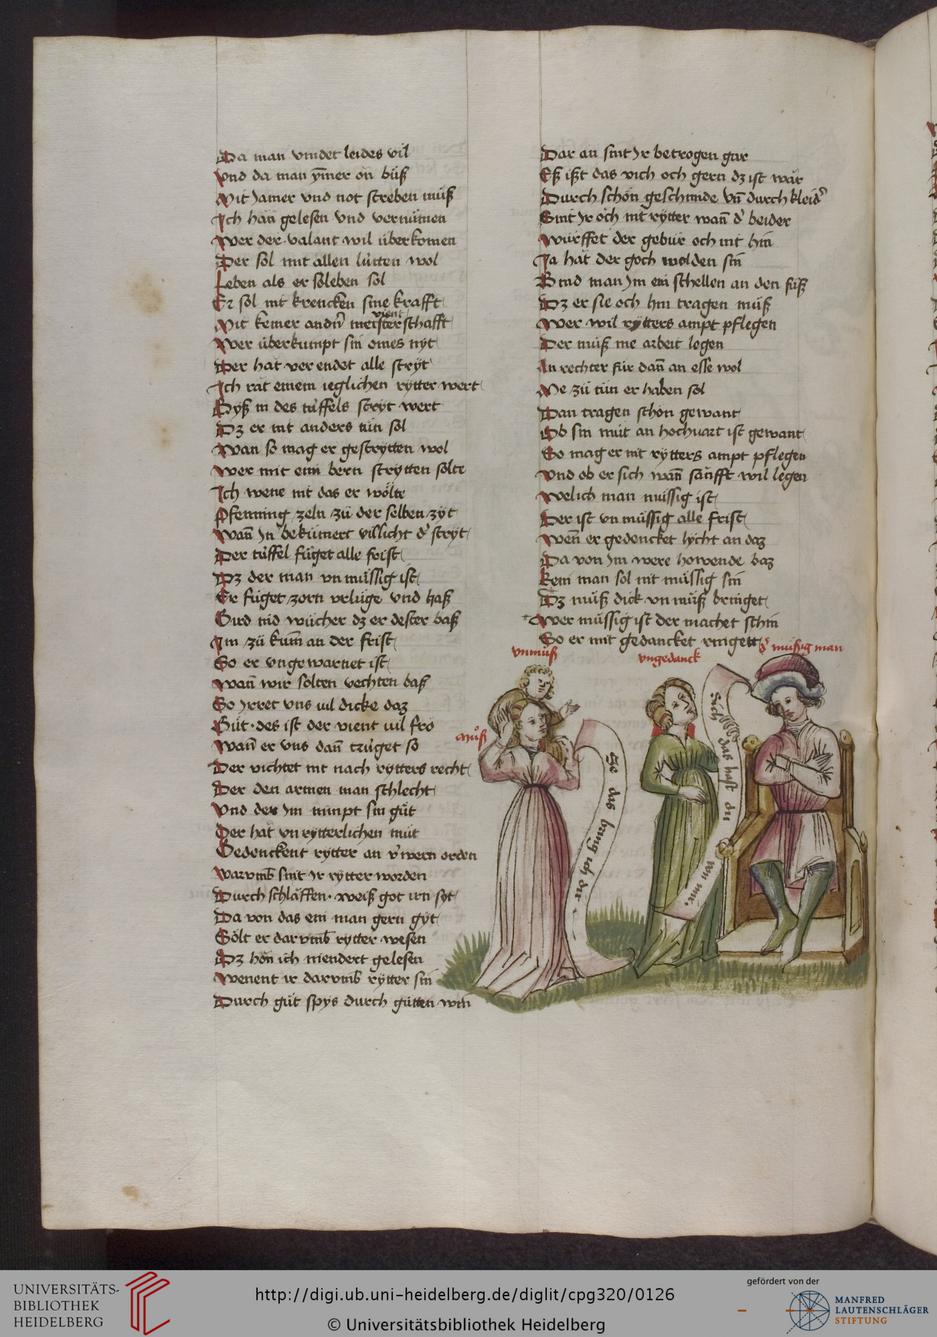 Da man vindet leides vil
Vnd da man ymer on buß
Mit Jamer vnd not streben muß
Ich han gelesen vnd vernumen
Wer der valant wil überkomen
Der sol mit allen lütten wol
Leben als er soleben sol
Er sol nit krencken sine krafft
Mit keiner andrͥ meisterschafft
vient
Wer überkumpt sin eines nyt
Der hat ver endet alle stryt
Ich rat einem ieglichen rytter wert
Byß in des tüffels stryt wert
Dz er nit anders tün sol
Wan so mag er gestrytten wol
Wer mit eim bern strytten solte
Ich wene nit das er wölte
Pfenning zeln zü der selben zyt
Wan̄ Jn bekümert villicht dͥ stryt
Der tüffel füget alle frist
Dz der man vn müssig ist
Er füget zorn vrlüge vnd haß
Gird nid wücher dz er dester baß
Im zü kum̄ an der frist
So er vngewarnet ist
Wan̄ wir solten vechten baß
So Jrret vns vil dicke daz
Güt · des ist der vient vil fro
Wan̄ er vns dan̄ trüget so
Der vichtet nit nach rytters recht
Der den armen man schlecht
Vnd der Jm nimpt sin güt
Der hat vn rytterlichen müt
Gedenckent rytter an v́wern orden
Warvmb sint ir rytter worden
Durch schlaffen · weiß got irn syt
Da von das ein man gern gyt
Sölt er darvmb rytter wesen
Dz hön ich niendert gelesen
Wenent ir darvmb rytter sin
Durch güt spys durch gütten win
Dar an sint Jr betrogen gar
Eß ißt das vich och gern dz ist war
Durch schön geschmide vn̄ durch kleidͥ
Sint Jr och nit rytter wan̄ dͥ beider
Würffet der gebur och nit hin
Ja hat der goch wolden sin
Bind man Jm ein schellen an den füß
Dz er sie och hin tragen müß
Wer wil rytters ampt pflegen
Der müß me arbeit legen
An rechter für dan̄ an esse wol
Me zü tün er haben sol
Dan tragen schön gewant
Ob sin müt an hochvart ist gewant
So mag er nit rytters ampt pflegen
Vnd ob er sich wan̄ sänfft wil legen
Welich man müssig ist
Der ist vn müssig alle frist
Wen̄ er gedencket lycht an daz
Da von Jm were howende baz
Kein man sol nit müssig sin
Dz müß dick vn müß bringet
Wer müssig ist der machet schin
So er mit gedancket ringett
vnmüß
vngedanck
dͥ müßig man
müß
Se das bring ich dir
Sich das hast du von mir.
UNIVERSITÄTS-
BIBLIOTHEK
HEIDELBERG
http://digi.ub.uni-heidelberg.de/diglit/cpg320/0126
© Universitätsbibliothek Heidelberg
gefördert von der
MANFRED
LAUTENSCHLÄGER
STIFTUNG